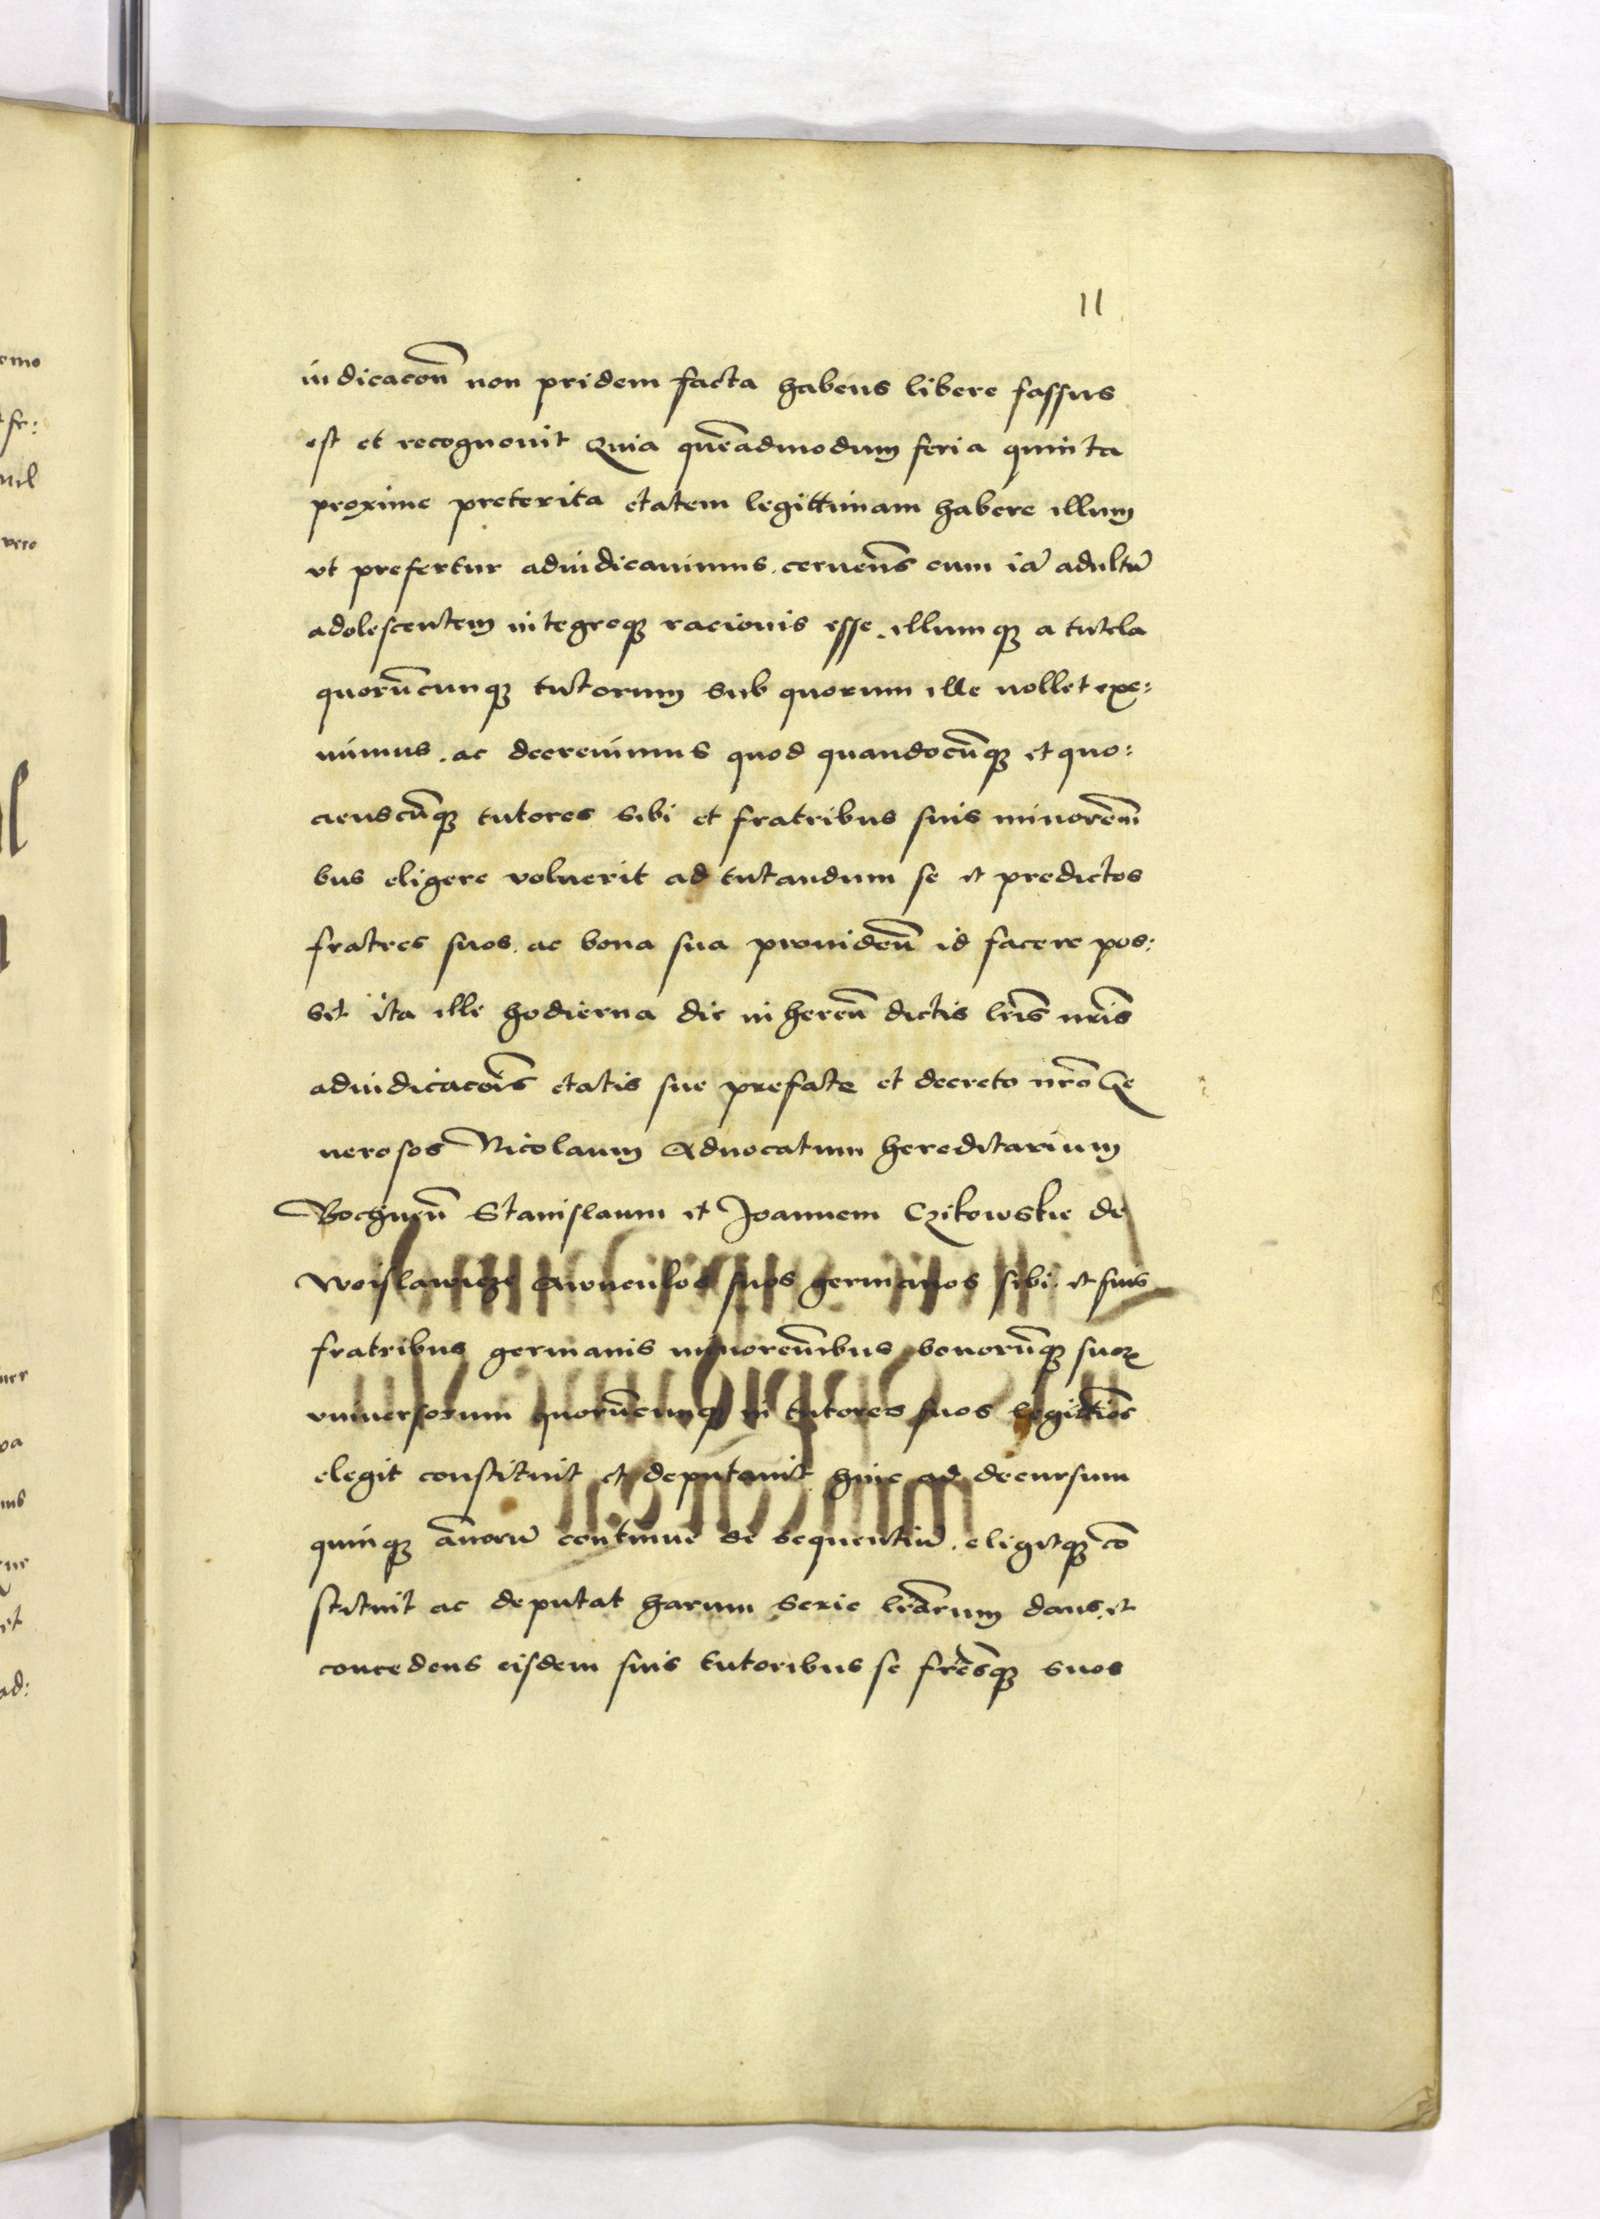 11
iudicacoñ non pridem facta habens libere fassus
est et recognouit Quia quēadmodum feria quinta
proxime preterita etatem legittimam habere illum
vt prefertur adiudicauimus. cernens̄ eum iā adultū
adolescentem integreqꝫ racionis esse. illumqꝫ a tutela
quorūcunqꝫ tutorum sub quorum ille nollet exe:
mimus. ac decreuimus quod quandocūqꝫ et quo:
cienscūqꝫ tutores sibi et fratribus suis minorem̄
bus eligere voluerit ad tutandum se et predictos
fratres suos. ac bona sua prouideñ id facere pos:
set ita ille hodierna die inhereñ dictis lr̄is nr̄is
adiudicacōis etatis sue prefate et decreto nr̄o Ge
nerosos Nicolaum Aduocatum hereditarium
Bochneñ Stanislaum et Joannem Czikowskie de
Woislawicze Auunculos suos germanos sibi et suis
fratribus germanis minorem̄ibus bonorūqꝫ suoꝝ
vniuersorum quorūcunqꝫ in tutores suos legittios
elegit constituit et deputauit huic ad decursum
quinqꝫ ānorū continue se sequentiū. eligitqꝫ cō
stituit ac deputat harum serie lr̄arum dans. et
concedens eisdem suis tutoribus se fr̄esqꝫ suos